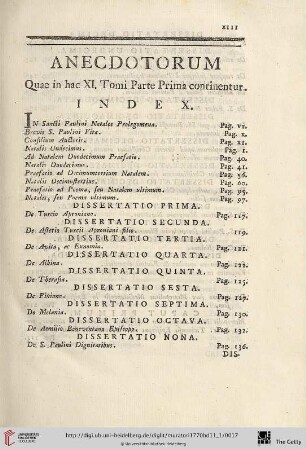 XIII
ANECDOTORUM
Quae in hac XI. Tomi Parte Prima continentur.
INDEX.
IN Sancti Paulini Natales Prolegomena. Pag. VI.
Brevis S. Paulini Vita. Pag. X.
Consilium Auctoris. Pag. XI.
Natalis Undecimus. Pag. 1.
Ad Natalem Duodecimum Praefatio. Pag. 40.
Natalis Duodecimus. Pag. 41.
Praefatio ad Decimumtertium Natalem. Pag. 56.
Natalis Decimustertius. Pag. 60.
Praefatio ad Poema, seu Natalem ultimum. Pag. 95.
Natalis, seu Poema ultimum. Pag. 97.
DISSERTATIO PRIMA.
De Turcio Aproniano. Pag. 117.
DISSERTATIO SECUNDA.
De Asterio Turcii Aproniani filio. 119.
DISSERTATIO TERTIA.
De Avita, et Eunomia. Pag. 121.
DISSERTATIO QUARTA.
De Albina. Pag. 122.
DISSERTATIO QUINTA.
De Therasia. Pag. 125.
DISSERTATIO SESTA.
De Piniano. Pag. 129.
DISSERTATIO SEPTIMA.
De Melania. Pag. 130.
DISSERTATIO OCTAVA.
De Aemilio Beneventano Episcopo. Pag. 132.
DISSERTATIO NONA.
De S. Paulini Dignitatibus. Pag. 136.
DIS-
UNIVERSITÄTS-BIBLIOTHEK HEIDELBERG
http://digi.ub.uni-heidelberg.de/diglit/muratori1770bd11_1/0017
© Universitätsbibliothek Heidelberg
The Getty